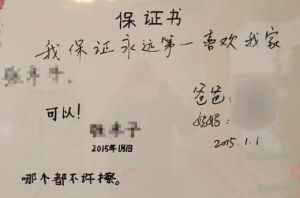 保证书
我保证永远第一喜欢我家
可以!
爸爸:
妈妈:
2015年1月1日
2015.1.1
哪个都不许擦。